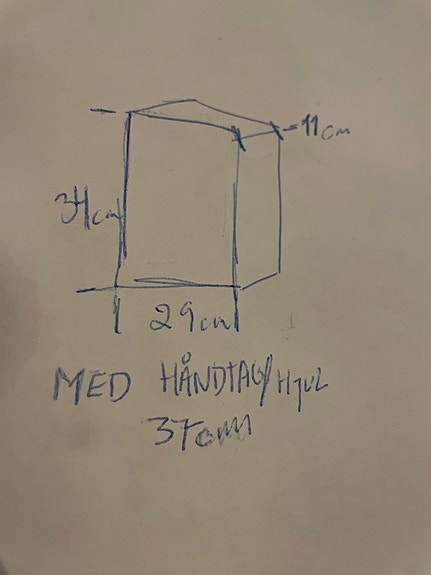 11cm
34cm
29cm
MED HÅNDTAG/HJUL
37cm